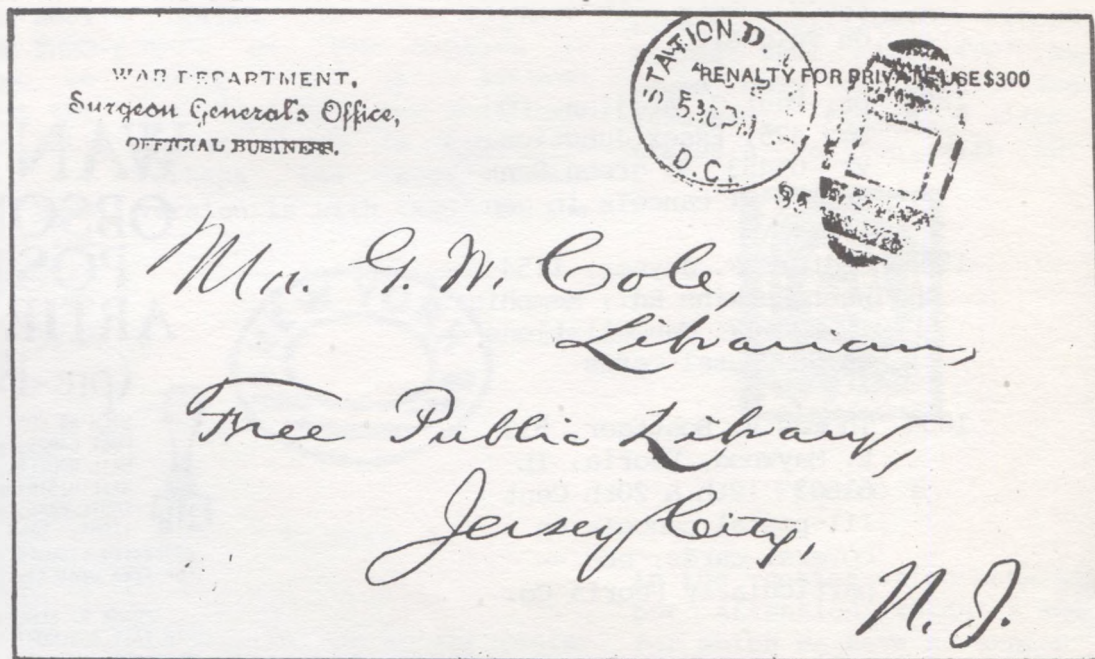 WAR DEPARTMENT,
Surgeon General's Office,
OFFICIAL BUSINESS.
STATION D.
530PM
D.C.
PENALTY FOR PRIVATE USE $300
Mr. G. W. Cole,
Librarian,
Free Public Library,
Jersey City,
N. J.